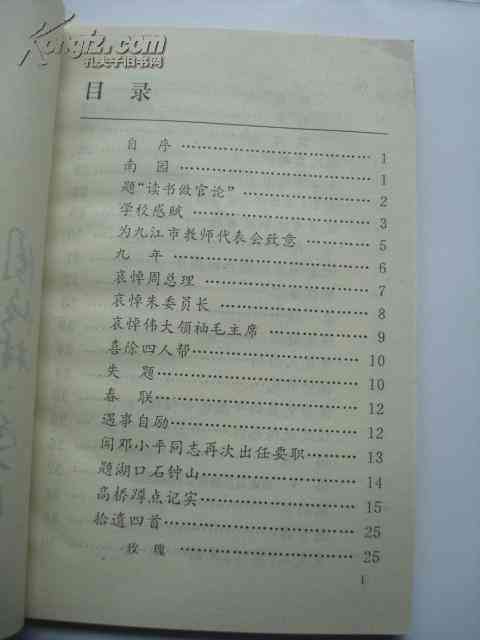 Kongfz.com
孔夫子旧书网
目录
自序 1
南园 1
题“读书做官论” 2
学校感赋 3
为九江市教师代表会致意 5
九年 6
哀悼周总理 7
哀悼朱委员长 8
哀悼伟大领袖毛主席 9
喜徐四人帮 10
失题 10
春联 12
遇事自励 12
闻邓小平同志再次出任要职 13
题湖口石钟山 14
高桥蹲点记实 15
拾遗四首 25
玫瑰 25
1